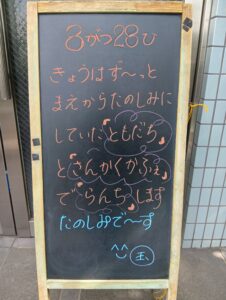 3がつ28ひ
きょうはず〜っと
まえからたのしみに
していたともだち
とさんかくかふぇ
でらんちします
たのしみで〜す
^^ 玉、